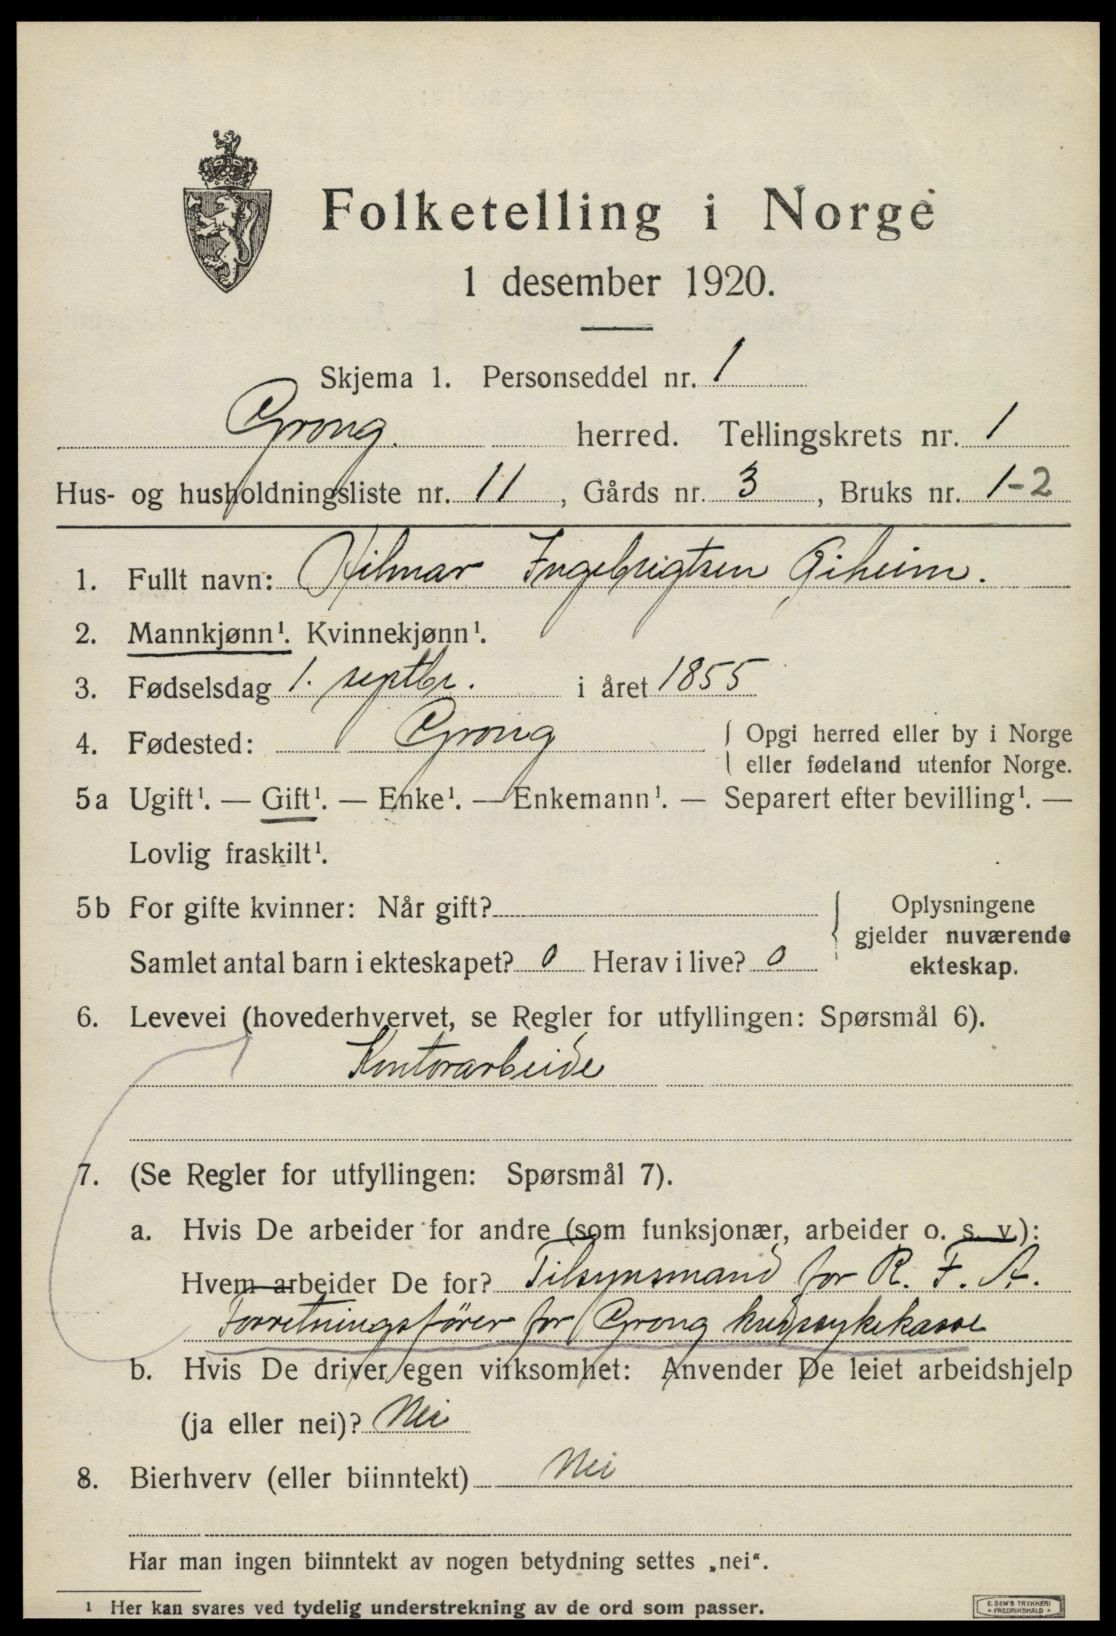 Folketelling i Norge
1 desember 1920.
Skjema 1. Personseddel nr. 1
Grong. herred. Tellingskrets nr. 1
Hus- og husholdningsliste nr. 11, Gårds nr. 3, Bruks nr. 1-2
1. Fullt navn: Hilmar Ingebrigtsen Giheim.
2. Mannkjønn¹. Kvinnekjønn¹.
3. Fødselsdag 1. septbr. i året 1855
4. Fødested: Grong { Opgi herred eller by i Norge
eller fødeland utenfor Norge.
5a Ugift¹. — Gift¹. — Enke¹. — Enkemann¹. — Separert efter bevilling¹. —
Lovlig fraskilt¹.
5b For gifte kvinner: Når gift?
Samlet antal barn i ekteskapet? 0 Herav i live? 0
Oplysningene
gjelder nuværende
ekteskap.
6. Levevei (hovederhvervet, se Regler for utfyllingen: Spørsmål 6).
Kontorarbeide
7. (Se Regler for utfyllingen: Spørsmål 7).
a. Hvis De arbeider for andre (som funksjonær, arbeider o. s. v.):
Hvem arbeider De for? Tilsynsmand for R. F. A.
Forretningsfører for Grong kredssykekasse
b. Hvis De driver egen virksomhet: Anvender De leiet arbeidshjelp
(ja eller nei)? Nei
8. Bierhverv (eller biinntekt) Nei
Har man ingen biinntekt av nogen betydning settes „nei“.
¹ Her kan svares ved tydelig understrekning av de ord som passer.
E. SEM'S TRYKKERI
FREDRIKSHALD